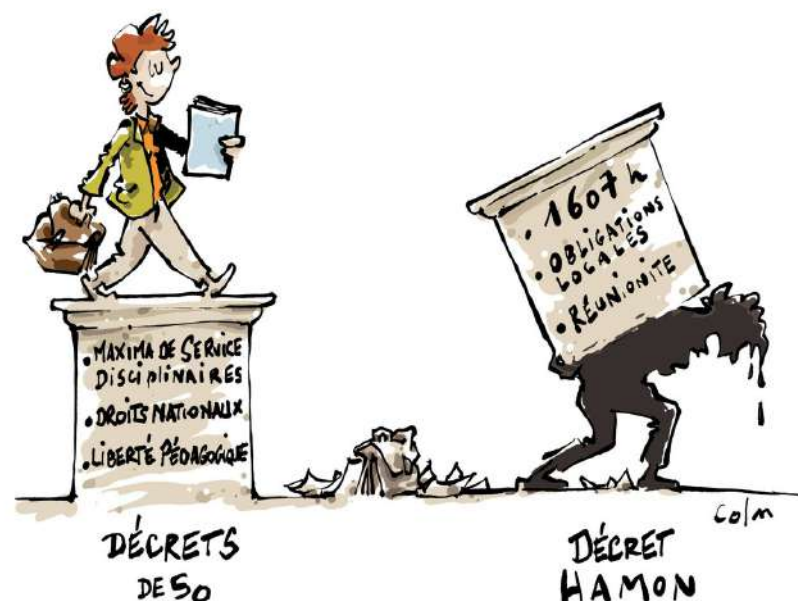 • MAXIMA DE SERVICE
DISCIPLINAIRES
• DROITS NATIONAUX
• LIBERTÉ PÉDAGOGIQUE
DÉCRETS
DE 50
• 1607 h
• OBLIGATIONS
LOCALES
• RÉUNIONITE
Colm
DÉCRET
HAMON